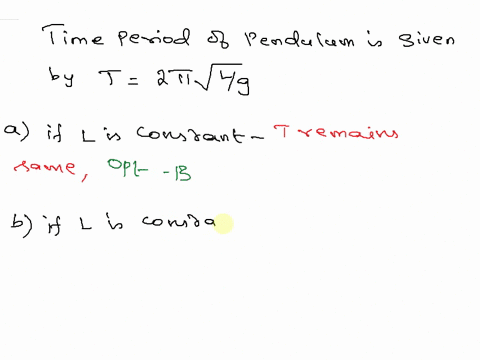 Time Period of Pendulum is given
by T = 2π√L/g
a) if L is constant - T remains
same, opt - B
b) if L is consta